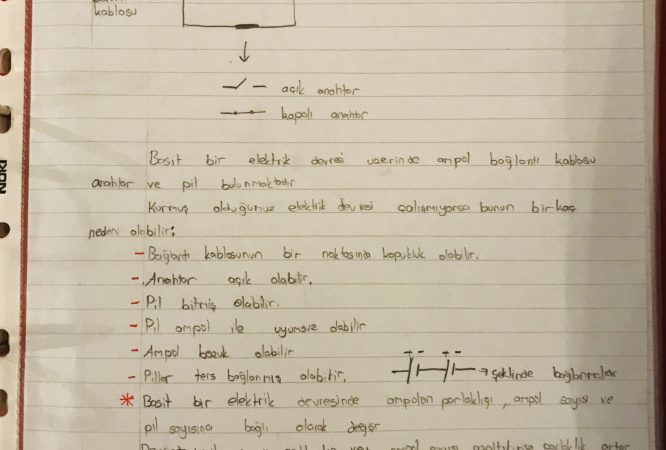 kablosu
açık anahtar
kapalı anahtar
Basit bir elektrik devresi üzerinde ampol bağlantı kablosu
anahtar ve pil bulunmaktadır
Kurmuş olduğumuz elektrik devresi çalışmıyorsa bunun birkaç
nedeni olabilir:
- Bağlantı kablosunun bir noktasında kopukluk olabilir.
- Anahtar açık olabilir.
- Pil bitmiş olabilir.
- Pil ampol ile uyumsuz olabilir
- Ampol bozuk olabilir
- Piller ters bağlanmış olabilir. → şeklinde bağlanmalar
* Basit bir elektrik devresinde ampolün parlaklığı, ampol sayısı ve
pil sayısına bağlı olarak değişir
NOKI